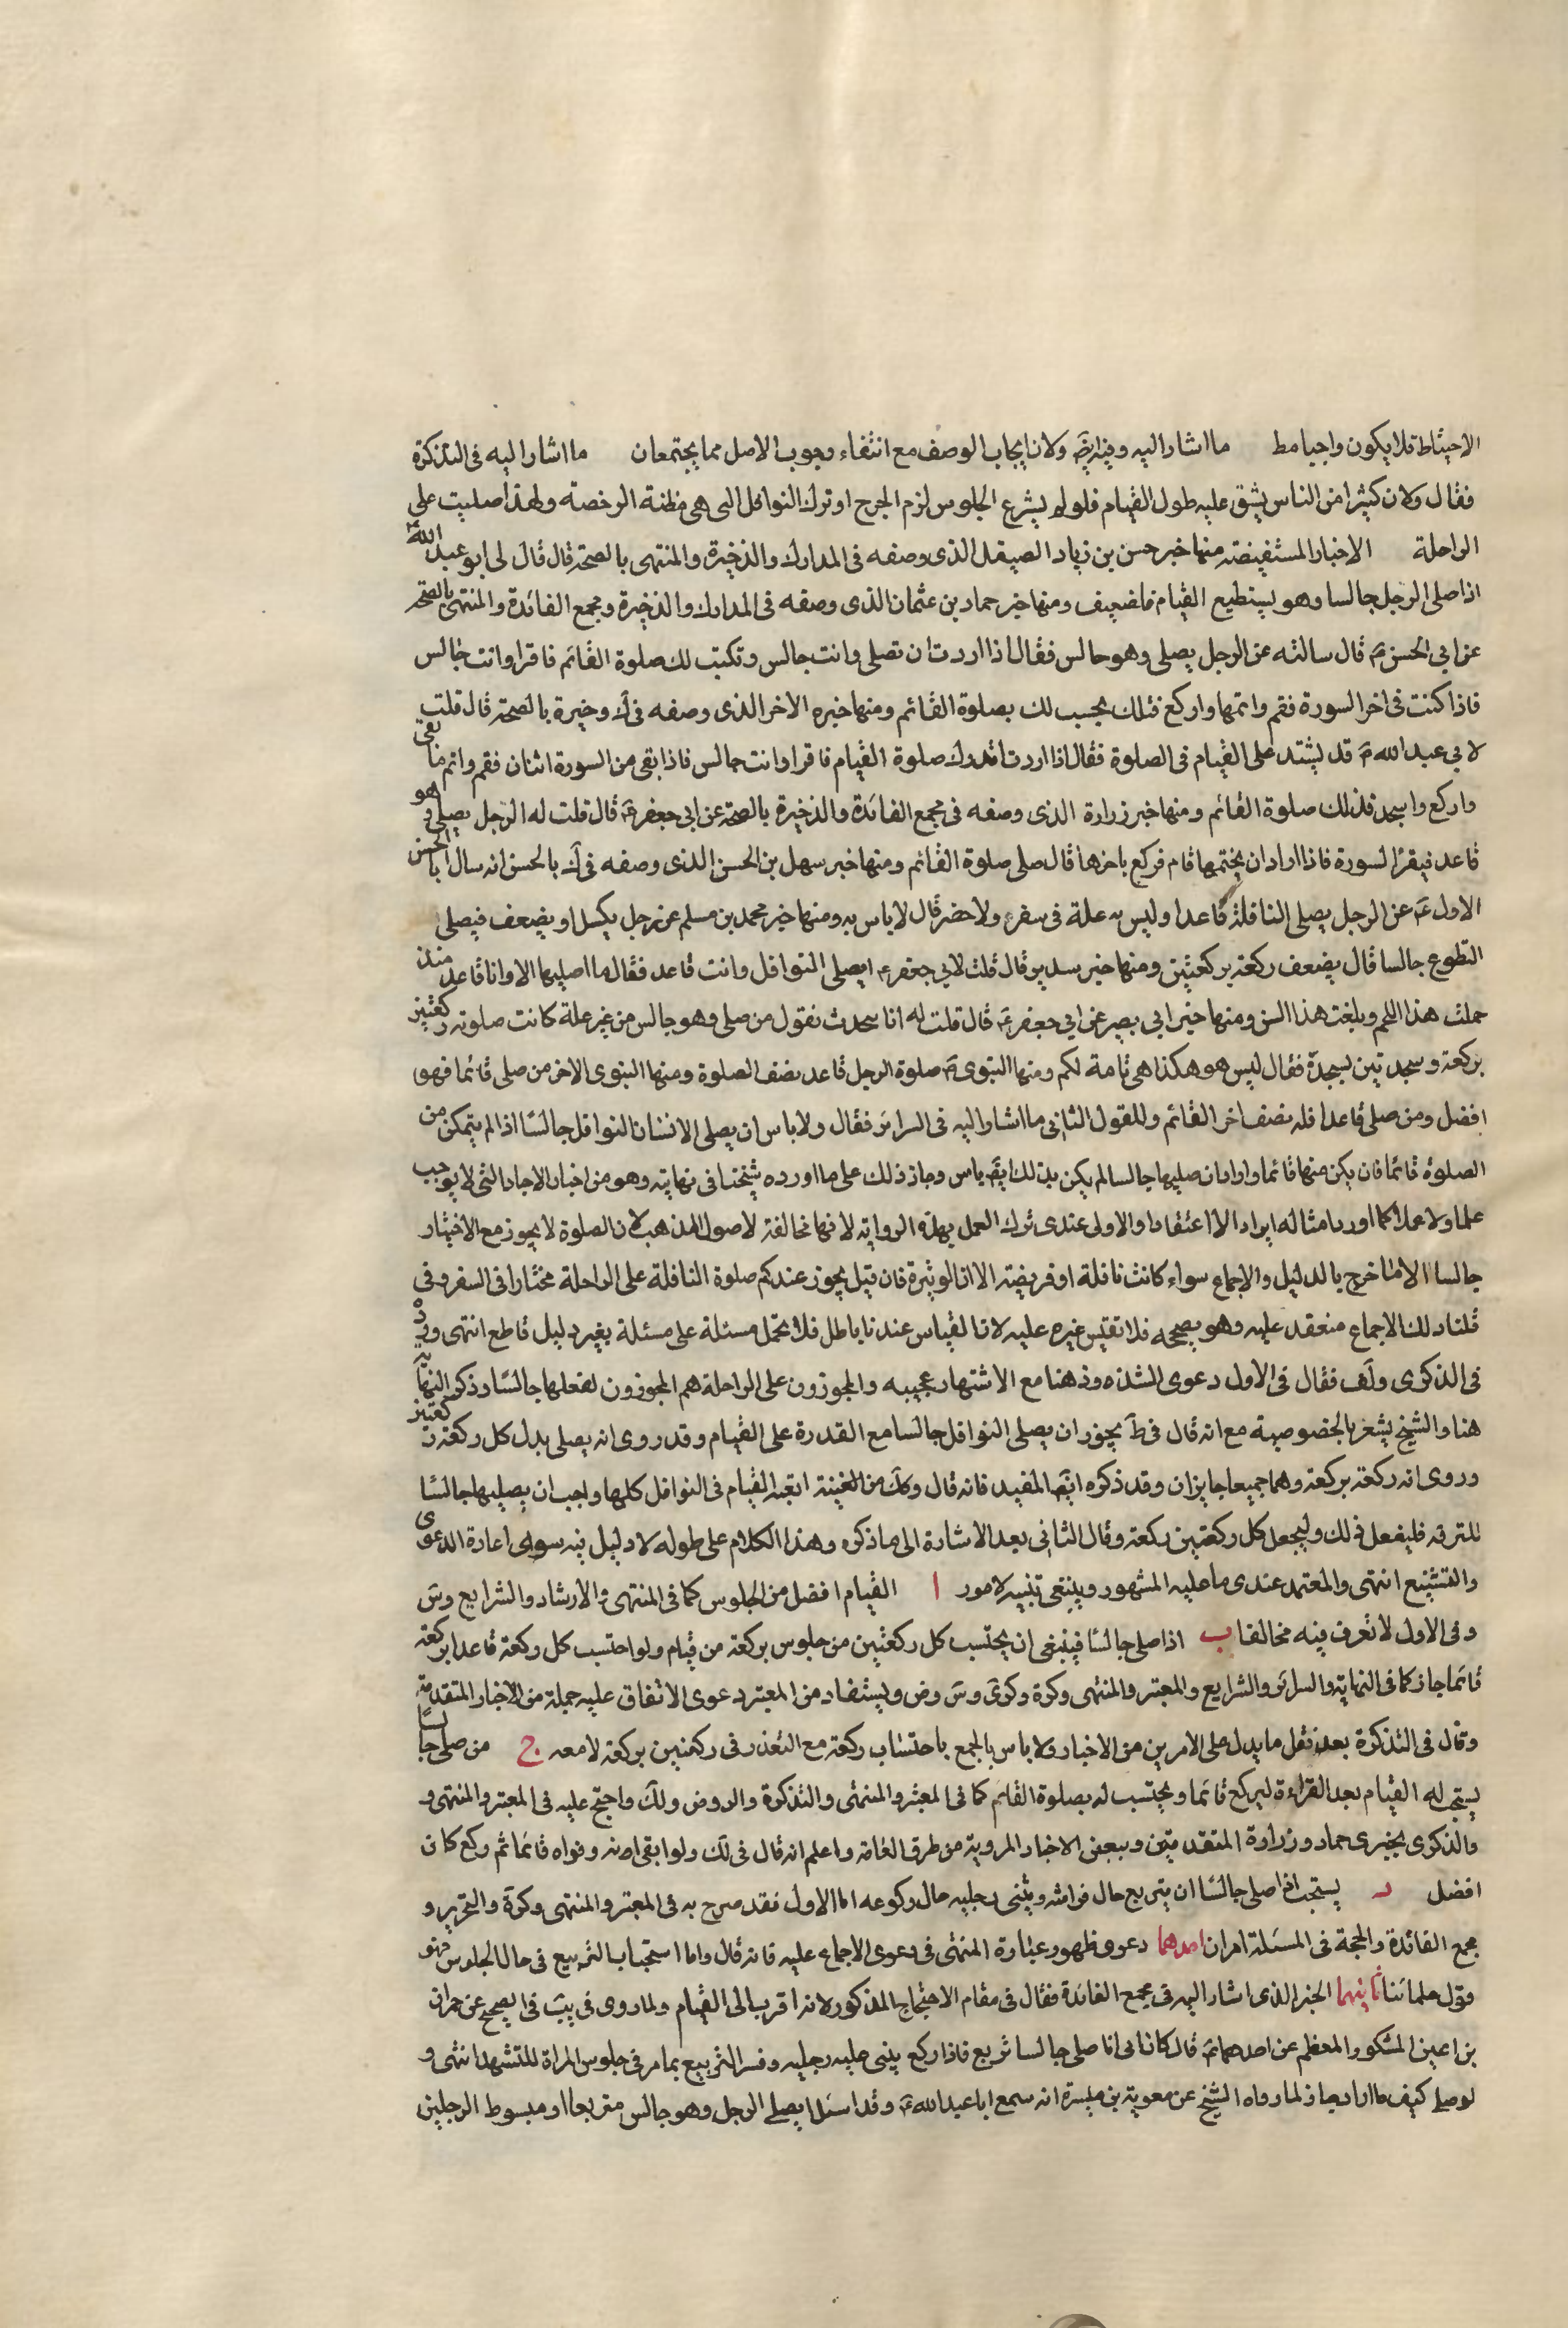 الاحتياط فلا يكون واجبا مط ما اشار اليه وفيه ايضَ ولان ايجاب الوصف مع انتفاء وجوب الاصل مما يجتمعان ما اشار اليه فى التذكرة
فقال ولان كثيرا من الناس يشق عليه طول القيام فلو لم يشرع الجلوس لزم الحرج او ترك النوافل التى هى مظنة الرخصة ولهذا صليت على
الراحلة الاخبار المستفيضة منها خبر حسن بن زياد الصيقل الذى وصفه فى المدارك والذخيرة والمنتهى بالصحة قال قال لى ابو عبد الله ع
اذا صلى الرجل جالسا وهو يستطيع القيام فاضعيف ومنها خبر حماد بن عثمان الذى وصفه فى المدارك والذخيرة ومجمع الفائدة والمنتهى بالصحة
عن ابى الحسن ع قال سالته عن الرجل يصلى وهو جالس فقال اذا اردت ان تصلى وانت جالس وتكتب لك صلوة القائم فاقرا وانت جالس
فاذا كنت فى اخر السورة فقم واتمها واركع فتلك يحسب لك بصلوة القائم ومنها خبره الاخر الذى وصفه فى ك وخيرة بالصحة قال قلت
لابى عبد الله ع قد يشتد على القيام فى الصلوة فقال اذا اردت ان تدرك صلوة القيام فاقرا وانت جالس فاذا بقى من السورة اثنان فقم واتم ما بقى
واركع واسجد فذلك صلوة القائم ومنها خبر زرارة الذى وصفه فى مجمع الفائدة والذخيرة بالصحة عن ابى جعفر ع قال قلت له الرجل يصلى وهو
قاعد فيقرأ السورة فاذا اراد ان يختمها قام فركع باخرها قال صلى صلوة القائم ومنها خبر سهل بن الحسن الذى وصفه فى ك بالحسن انه سال ابا الحسن
الاول ع عن الرجل يصلى النافلة قاعدا وليس به علة فى سفر ولا حضر قال لا باس به ومنها خبر محمد بن مسلم عن رجل يكسل او يضعف فيصلى
التطوع جالسا قال يضعف ركعة بركعتين ومنها خبر سدير قال قلت لابى جعفر ع ايصلى النوافل وانت قاعد فقال ما اصليها الا وانا قاعد منذ
حملت هذا اللحم وبلغت هذا السن ومنها خبر ابى بصير عن ابى جعفر ع قال قلت له انا نتحدث نقول من صلى وهو جالس من غير علة كانت صلوته ركعتين
بركعة وسجدتين بسجدة فقال ليس هو هكذا هى تامة لكم ومنها النبوى ص صلوة الرجل قاعد نصف الصلوة ومنها النبوى الاخر من صلى قائما فهو
افضل ومن صلى قاعدا فله نصف اخر القائم وللقول الثانى ما اشار اليه فى السرائر فقال ولا باس ان يصلى الانسان النوافل جالسا اذا لم يتمكن من
الصلوة قائما فان يكن منها قائما واراد ان صليها جالسا لم يكن بذلك ايضَ باس وجاز ذلك على ما اورده شيخنا فى نهايته وهو من اخبار الاحاد التى لا يوجب
علما ولا عملا كما اورد امثاله ايرادا لا اعتقادا والاولى عندى ترك العمل بهذه الرواية لانها مخالفة لاصول المذهب لان الصلوة لا يجوز مع الاختيار
جالسا الا ما خرج بالدليل والاجماع سواء كانت نافلة او فريضة الا الوتيرة فان قيل يجوز عندكم صلوة النافلة على الراحلة مختارا فى السفر وفى
قلنا ذلك الاجماع منعقد عليه وهو يصححه فلا نقيس غيره عليه لان القياس عندنا باطل فلا نحمل مسئلة على مسئلة بغير دليل قاطع انتهى ورده
فى الذكرى ولَف فقال فى الاول دعوى الشذوذ هنا مع الاشتهار عجيبه والمجوزون على الراحلة هم المجوزون لفعلها جالسا وذكر النهاية
هنا والشيخ يشعر بالخصوصية مع انه قال فى طَ يجوز ان يصلى النوافل جالسا مع القدرة على القيام وقد روى انه يصلى بدل كل ركعة ركعتين
وروى انه ركعة بركعة وهما جميعا جايزان وقد ذكره ايضَ المفيد فانه قال وكك من اتعبه القيام فى النوافل كلها واحب ان يصليها جالسا
للترفه فليفعل ذلك وليجعل كل ركعتين ركعة وقال الثانى بعد الاشارة الى ما ذكره وهذا الكلام على طوله لا دليل فيه سوى اعادة الدعوى
والتشنيع انتهى والمعتمد عندى ما عليه المشهور وينبغى تنبيه لامور ا القيام افضل من الجلوس كما فى المنتهى والارشاد والشرايع وسَ
وفى الاول لا نعرف فيه مخالفا ب اذا صلى جالسا فينبغى ان يحتسب كل ركعتين من جلوس بركعة من قيام ولو احتسب كل ركعة قاعدا بركعة
قائما جاز كما فى النهاية والسرائر والشرايع والمعتبر والمنتهى وكرة وكرى وسَ وض ويستفاد من المعتبر دعوى الاتفاق عليه جملة من الاخبار المتقدمة
وقال فى التذكرة بعد نقل ما يدل على الامرين من الاخبار ولا باس بالجمع باحتساب ركعة مع التعذر فى ركعتين بركعة لا معه ج من صلى جالسًا
يستحب له القيام بعد القراءة ليركع قائما ويحتسب له بصلوة القائم كما فى المعتبر والمنتهى والتذكرة والروض ولك واحتج عليه فى المعتبر والمنتهى و
والذكرى بخبرى حماد وزرارة المتقدمتين وببعض الاخبار المروية من طرق العامة واعلم انه قال فى لك ولو ابقى اية ونواه قائما ثم ركع كان
افضل د يستحب اذا صلى جالسا ان يتربع حال قرائته ويثنى رجليه حال ركوعه اما الاول فقد صرح به فى المعتبر والمنتهى وكرة والتحرير و
مجمع الفائدة والحجة فى المسئلة امران احدهما دعوى ظهور عبارة المنتهى فى دعوى الاجماع عليه فانه قال واما استحباب التربيع فى حال الجلوس فهو
قول علمائنا ثانيهما الخبر الذى اشار اليه فى مجمع الفائدة فقال فى مقام الاحتجاج المذكور لانه اقرب الى القيام ولما روى فى يبَ فى الصحيح عن حمران
بن اعين المشكور المعظم عن احدهما ع قال كان ابى اذا صلى جالسا تربع فاذا ركع يثنى رجليه وفسر التربيع بما مر فى جلوس المراة للتشهد انتهى و
لو صلى كيف ما اراد جاز لما رواه الشيخ عن معوية بن ميسرة انه سمع ابا عبد الله ع وقد اسئل ايصلى الرجل وهو جالس متربعا او مبسوط الرجلين